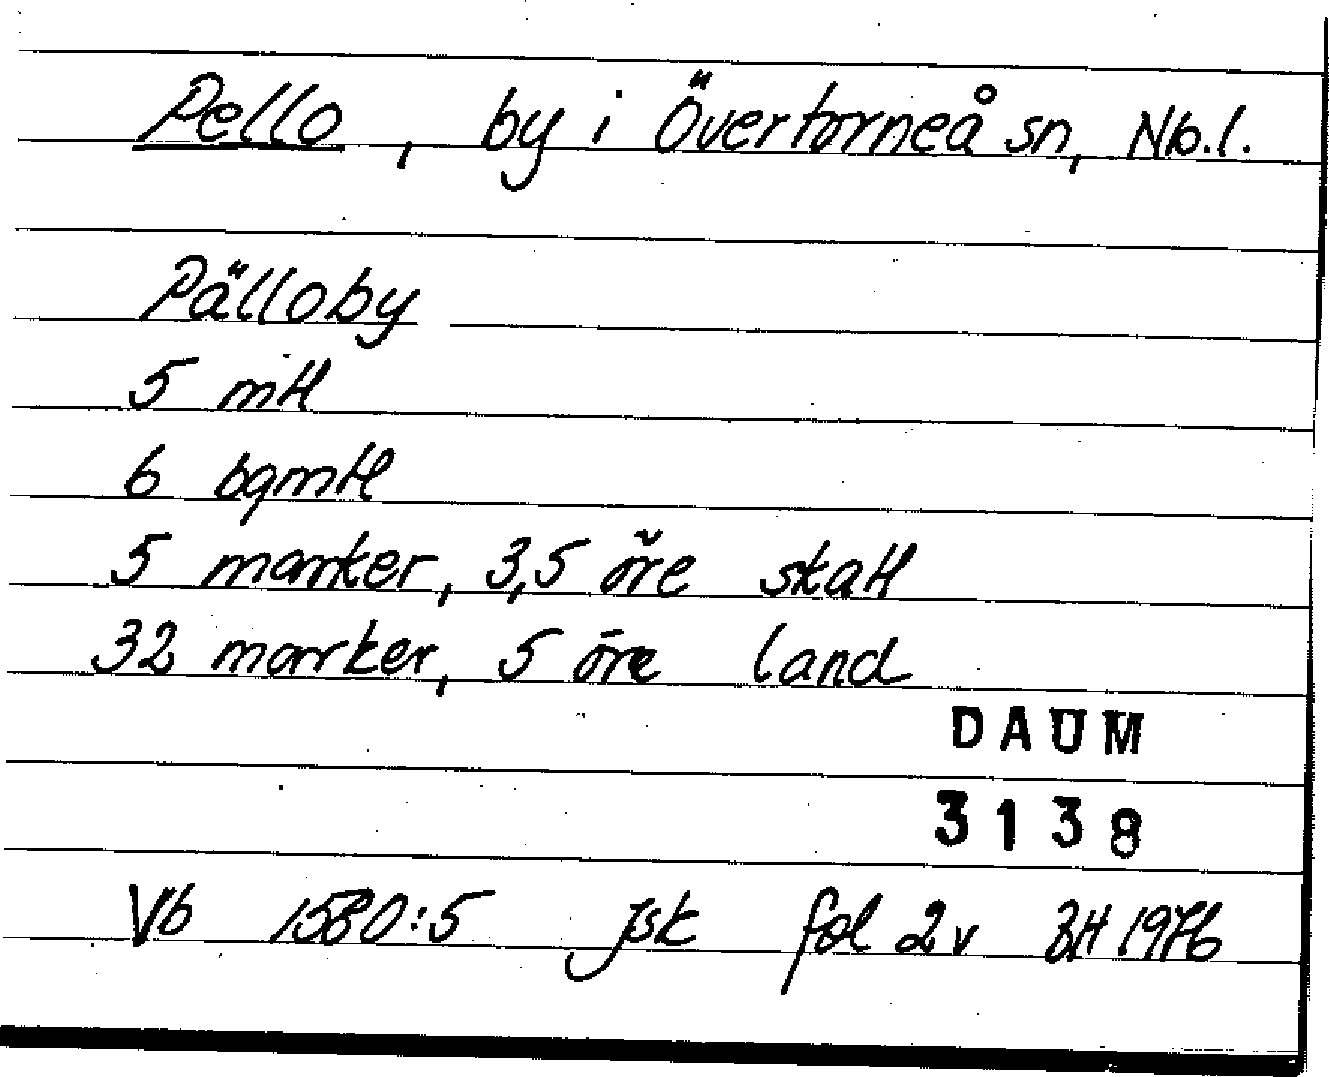 Pello, by i Övertorneå sn, Nb.l.
Pälloby
5 mtl
6 bgmtl
5 marker, 3,5 öre skatt
32 marker, 5 öre land
DAUM
3138
Vb 1580:5 jsk fol 2v BH 1976